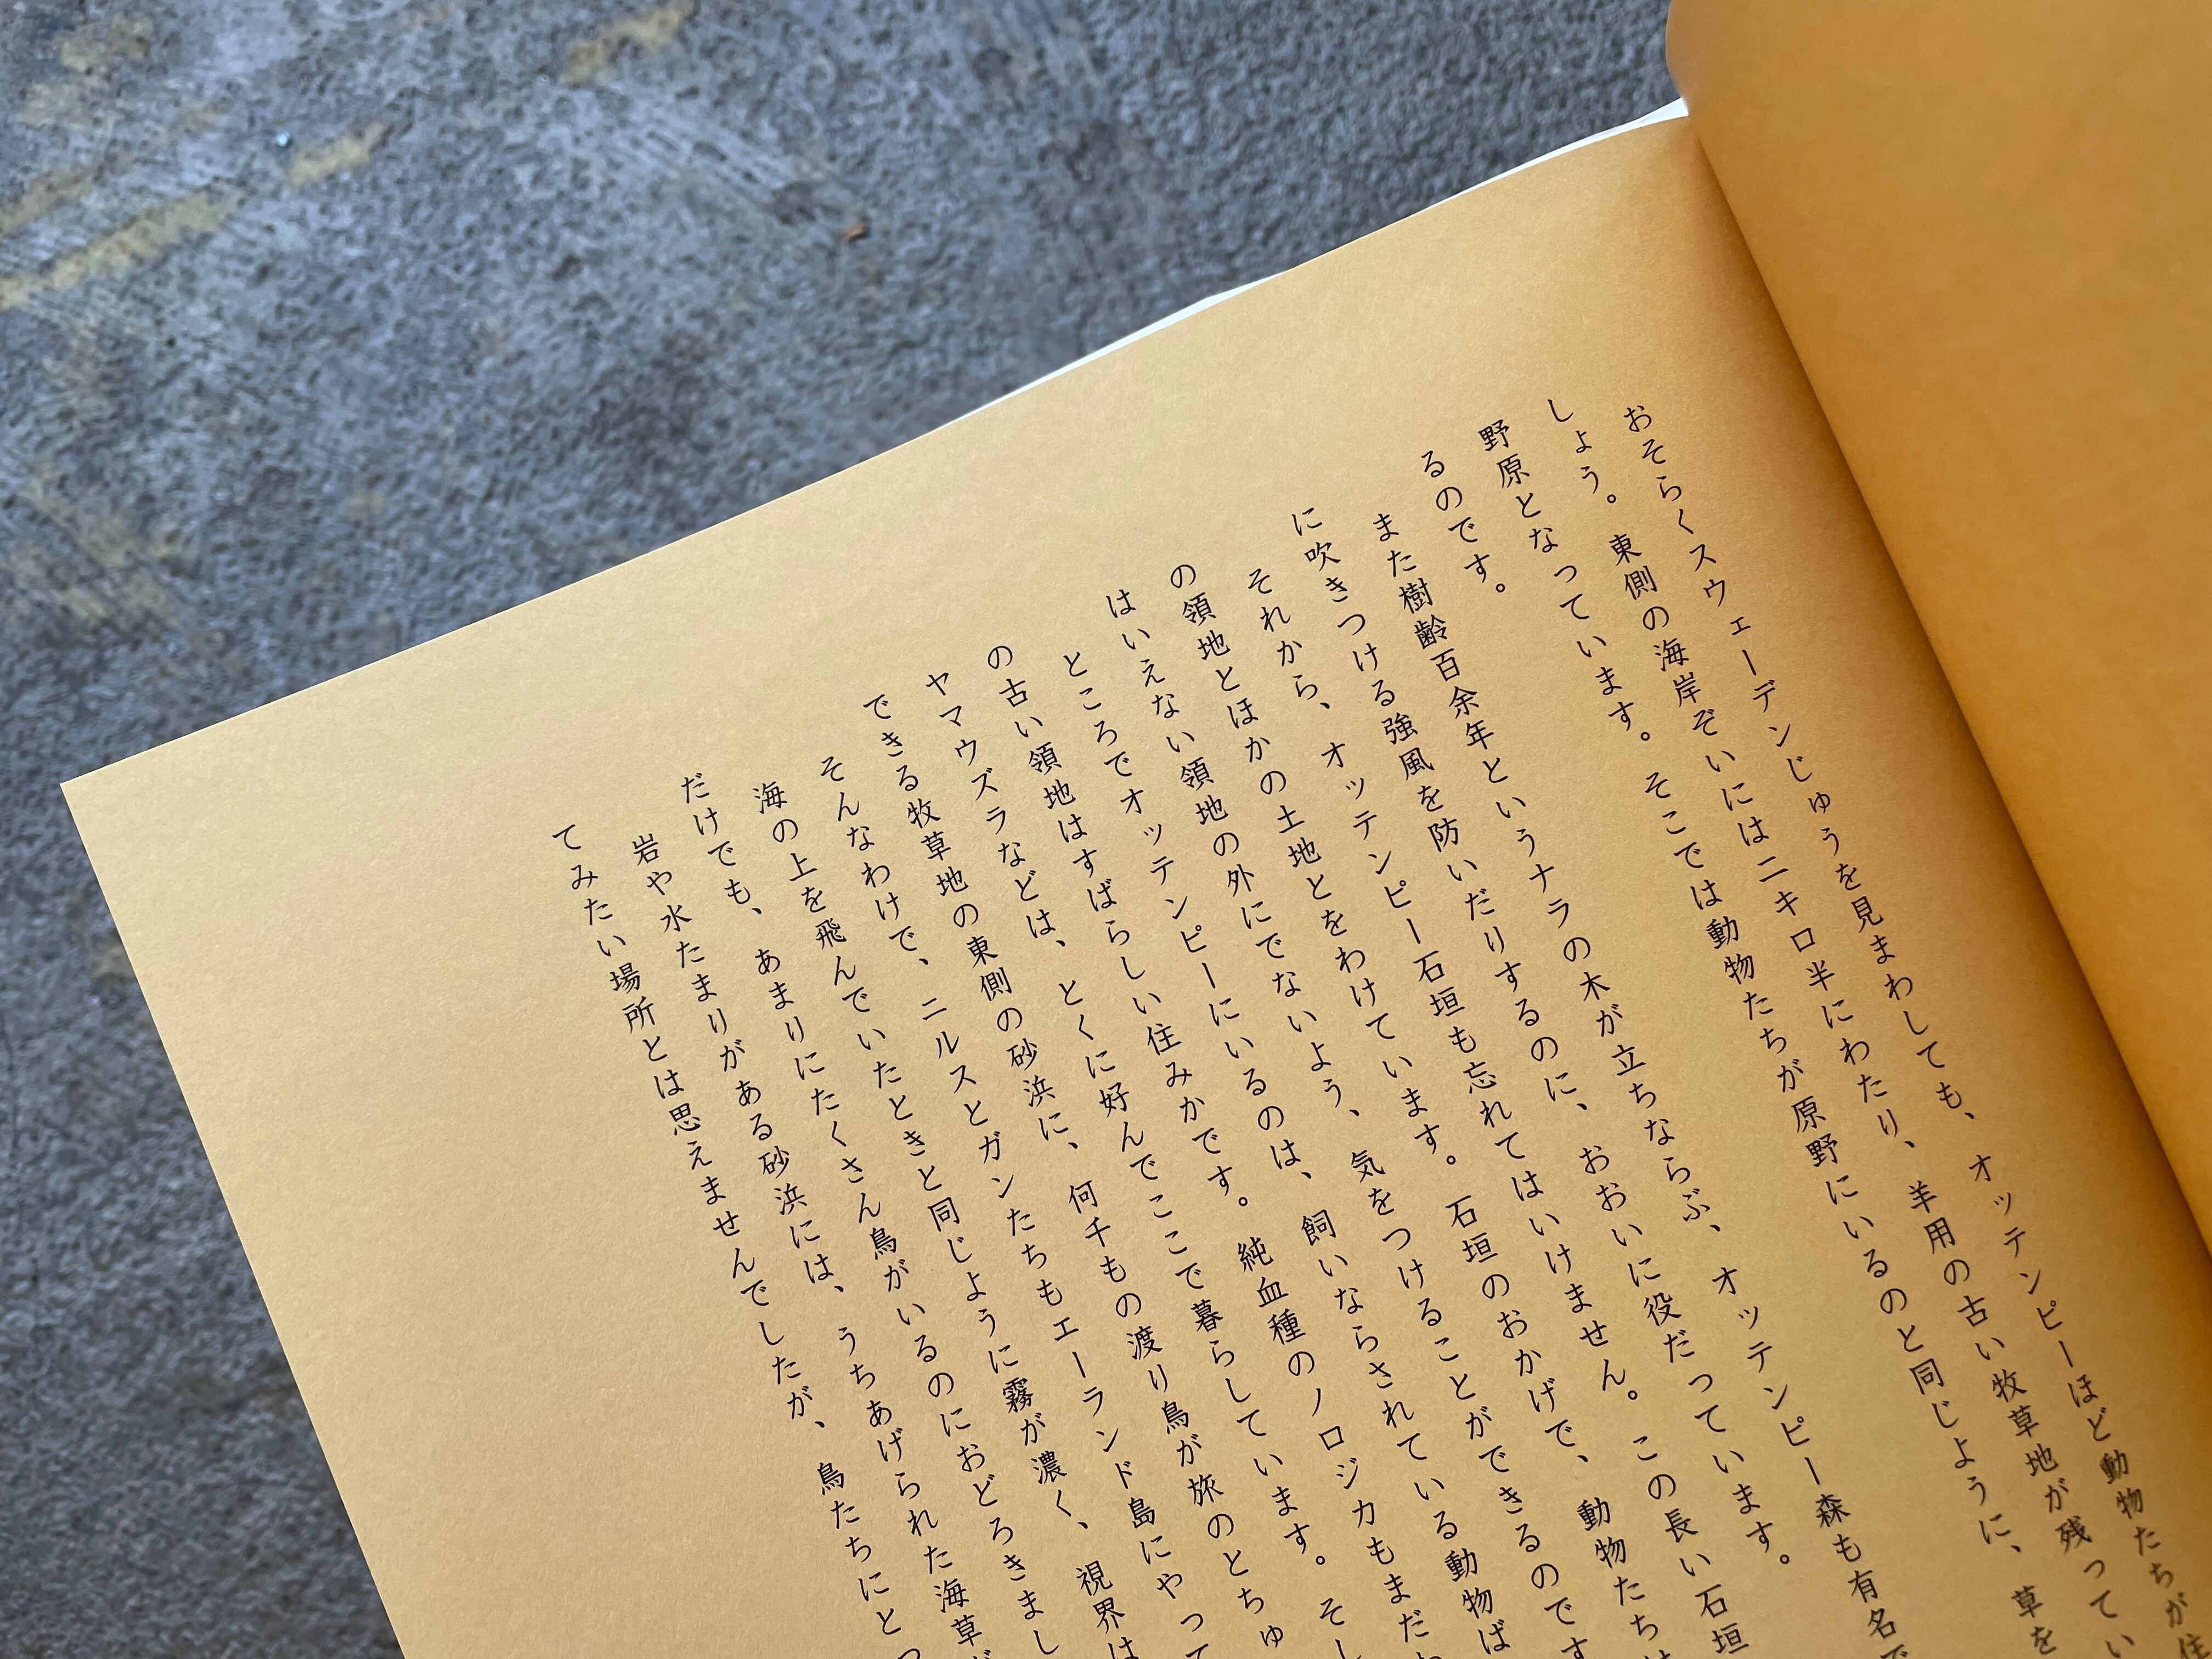 おそらくスウェーデンじゅうを見まわしても、オッテンピーほど動物たちが住
しょう。東側の海岸ぞいには二キロ半にわたり、羊用の古い牧草地が残ってい
野原となっています。そこでは動物たちが原野にいるのと同じように、草を
るのです。
また樹齢百余年というナラの木が立ちならぶ、オッテンピー森も有名で
に吹きつける強風を防いだりするのに、おおいに役だっています。
それから、オッテンピー石垣も忘れてはいけません。この長い石垣
の領地とほかの土地とをわけています。石垣のおかげで、動物たちは
はいえない領地の外にでないよう、気をつけることができるのです
ところでオッテンピーにいるのは、飼いならされている動物ば
の古い領地はすばらしい住みかです。純血種のノロジカもまだ
ヤマウズラなどは、とくに好んでここで暮らしています。そし
できる牧草地の東側の砂浜に、何千もの渡り鳥が旅のとちゅ
そんなわけで、ニルスとガンたちもエーランド島にやって
海の上を飛んでいたときと同じように霧が濃く、視界は
だけでも、あまりにたくさん鳥がいるのにおどろきまし
岩や水たまりがある砂浜には、うちあげられた海草が
てみたい場所とは思えませんでしたが、鳥たちにとっ